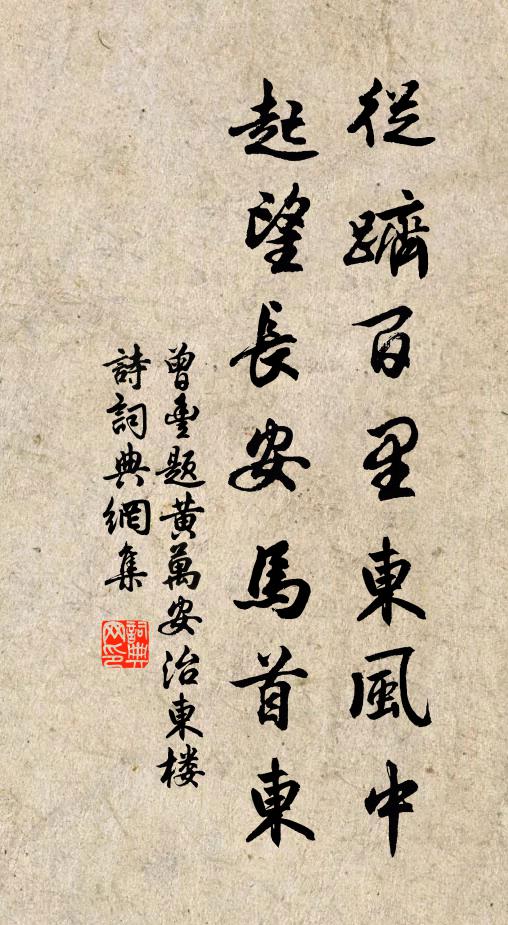 從躋百里東風中
起望長安馬首東
曾豊题黄萬安治東楼
詩詞典網集
詞典
网印